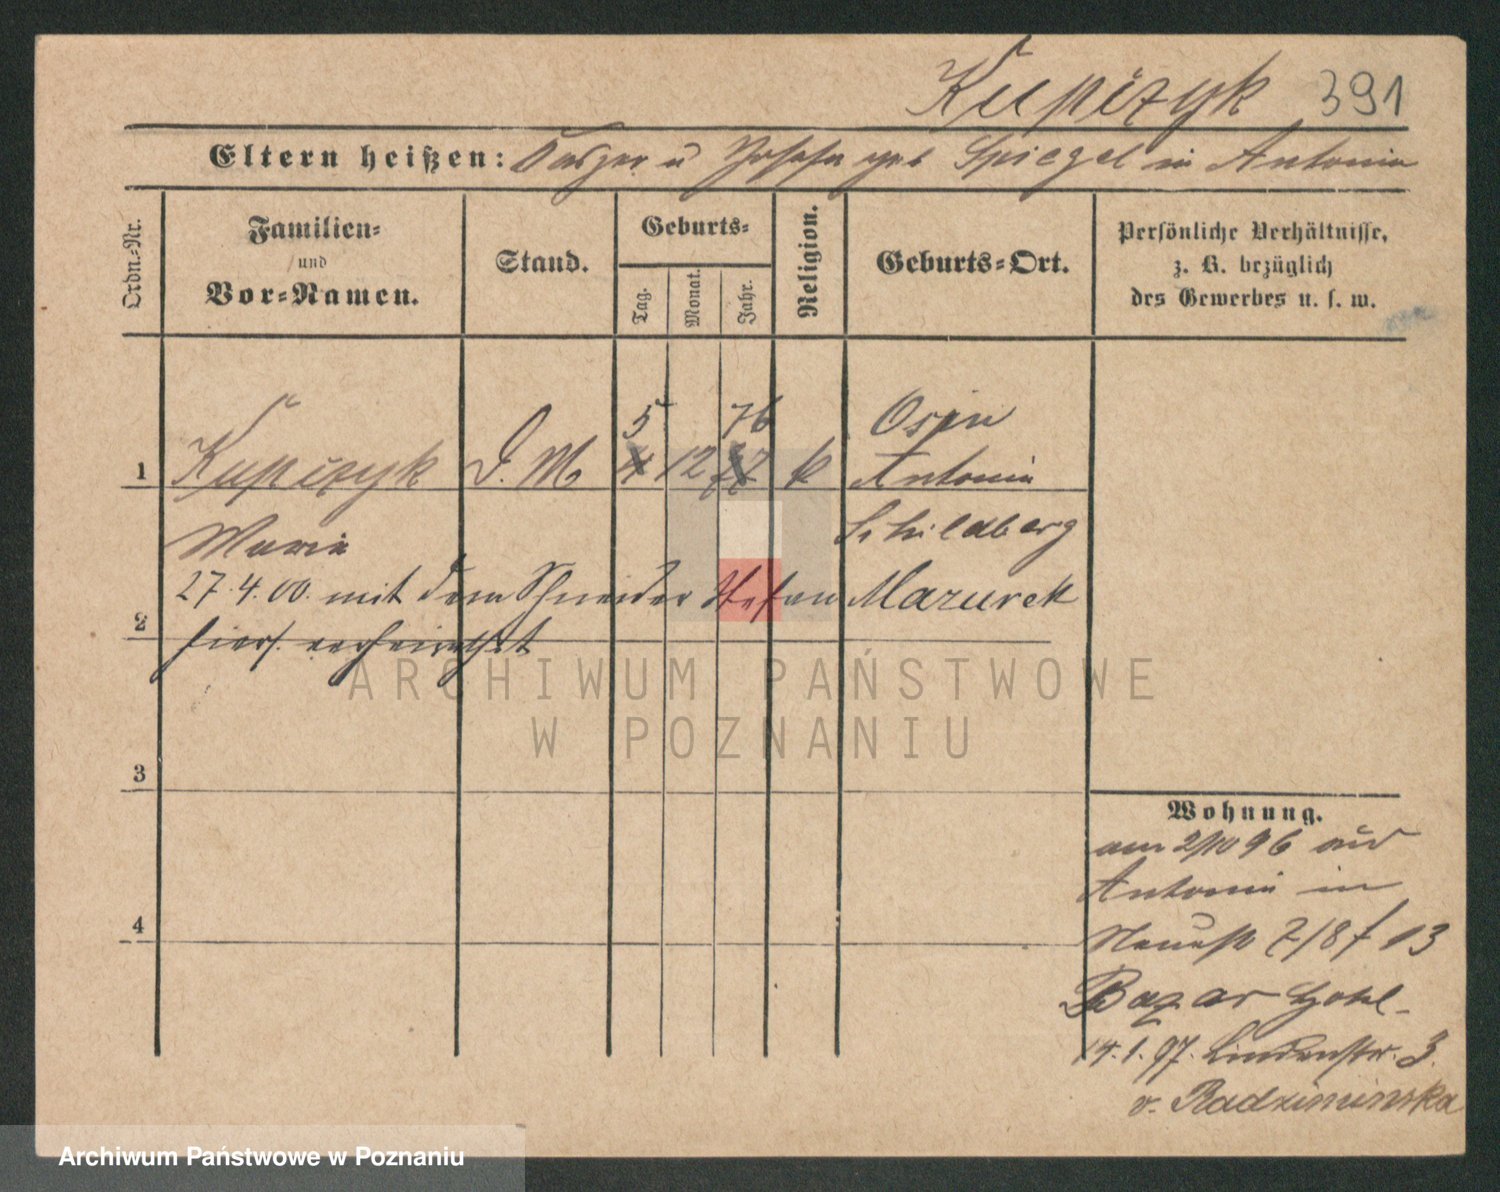 Kupczyk 391
Eltern heißen: Kasper u Josefa geb Spiegel in Antonin
Ordn.-Nr.
Familien-
und
Vor-Namen.
Stand.
Geburts-
Tag.
Monat.
Jahr.
Religion.
Geburts-Ort.
Persönliche Verhältnisse,
z. B. bezüglich
des Gewerbes u. s. w.
5 76
1 Kupczyk D. M 4 12 77 k Antonin
Maria Schildberg
27.4.00. mit dem Schneider Stefan Mazurek
2 hiers. verheirathet
3
4
Wohnung.
am 2/10 96 aus
Antonin in
Neuestr 7/8 f 13
Bazar Hotel
14.1.97. Lindenstr. 3.
v. Radziminska
ARCHIWUM PAŃSTWOWE
W POZNANIU
Archiwum Państwowe w Poznaniu